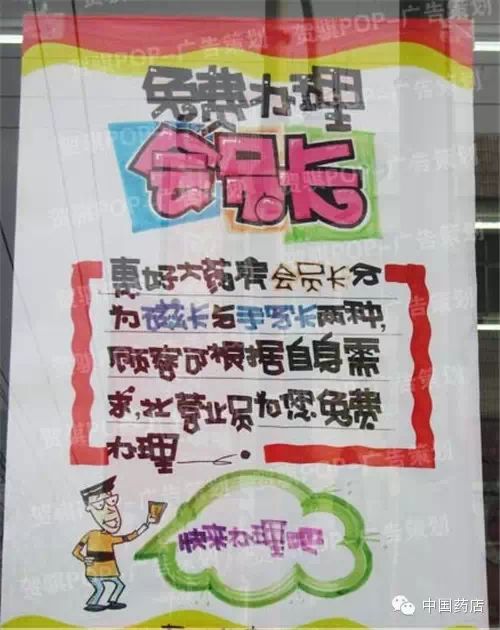 贺骐POP-广告策划
免费办理
会员卡
惠好大药房会员卡分
为磁卡与手写卡两种,
顾客可根据自身需
求,让营业员为您免费
办理
快来办理吧
中国药店